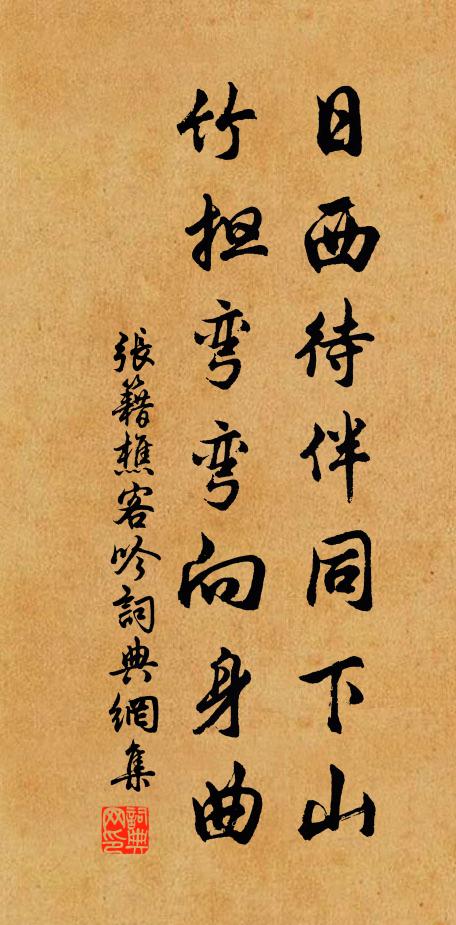 日西待伴同下山
竹担弯弯向身曲
張籍樵客吟詞典網集
詞典网印